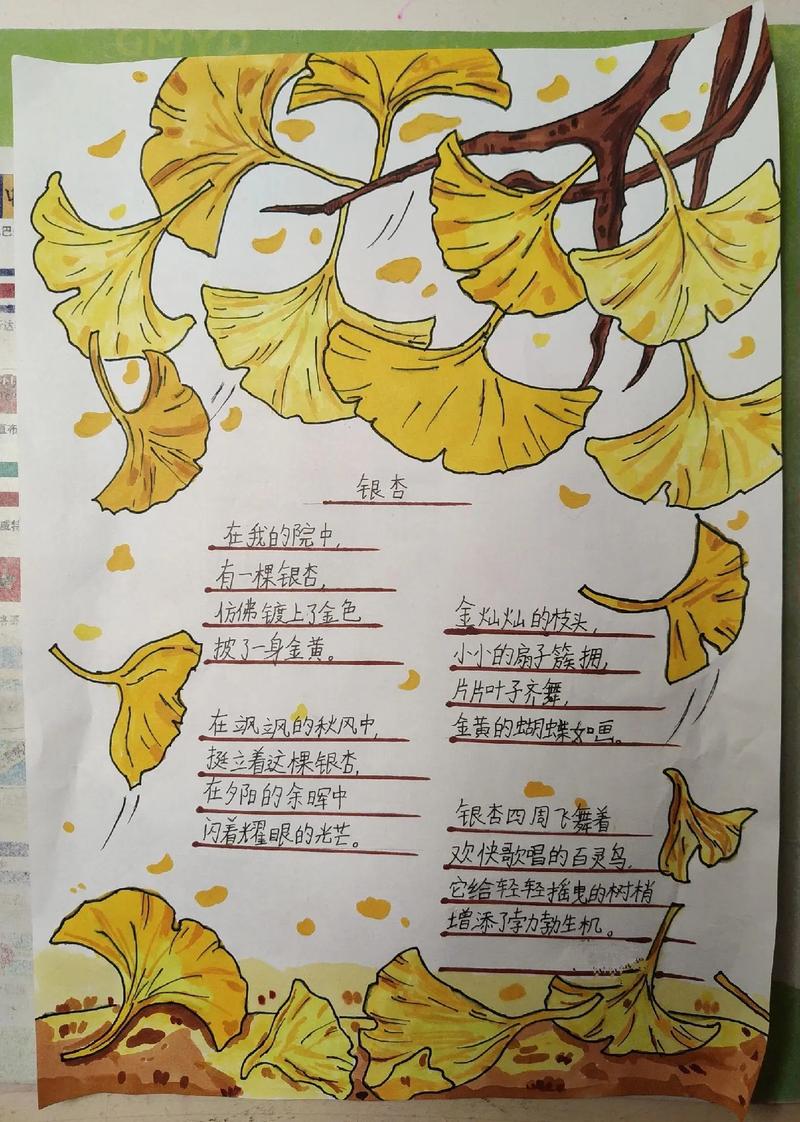 银杏
在我的院中，
有一棵银杏，
仿佛镀上了金色
披了一身金黄。
在飒飒的秋风中，
挺立着这棵银杏，
在夕阳的余晖中
闪着耀眼的光芒。
金灿灿的枝头，
小小的扇子簇拥，
片片叶子齐舞，
金黄的蝴蝶如画。
银杏四周飞舞着
欢快歌唱的百灵鸟，
它给轻轻摇曳的树梢
增添了勃勃生机。